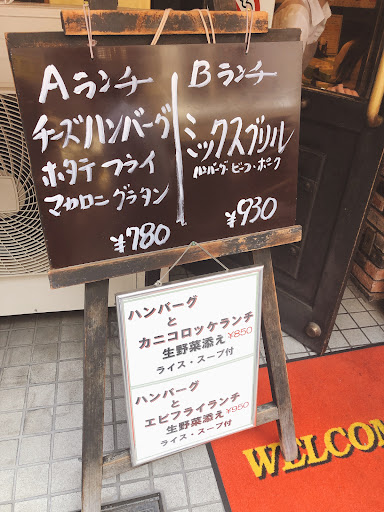 Aランチ
チーズハンバーグ
ホタテフライ
マカロニグラタン
¥780
Bランチ
ミックスグリル
ハンバーグ・ビーフ・ポーク
¥930
ハンバーグ
と
カニコロッケランチ
生野菜添え ¥850
ライス・スープ付
ハンバーグ
と
エビフライランチ
生野菜添え ¥950
ライス・スープ付
WELCOM